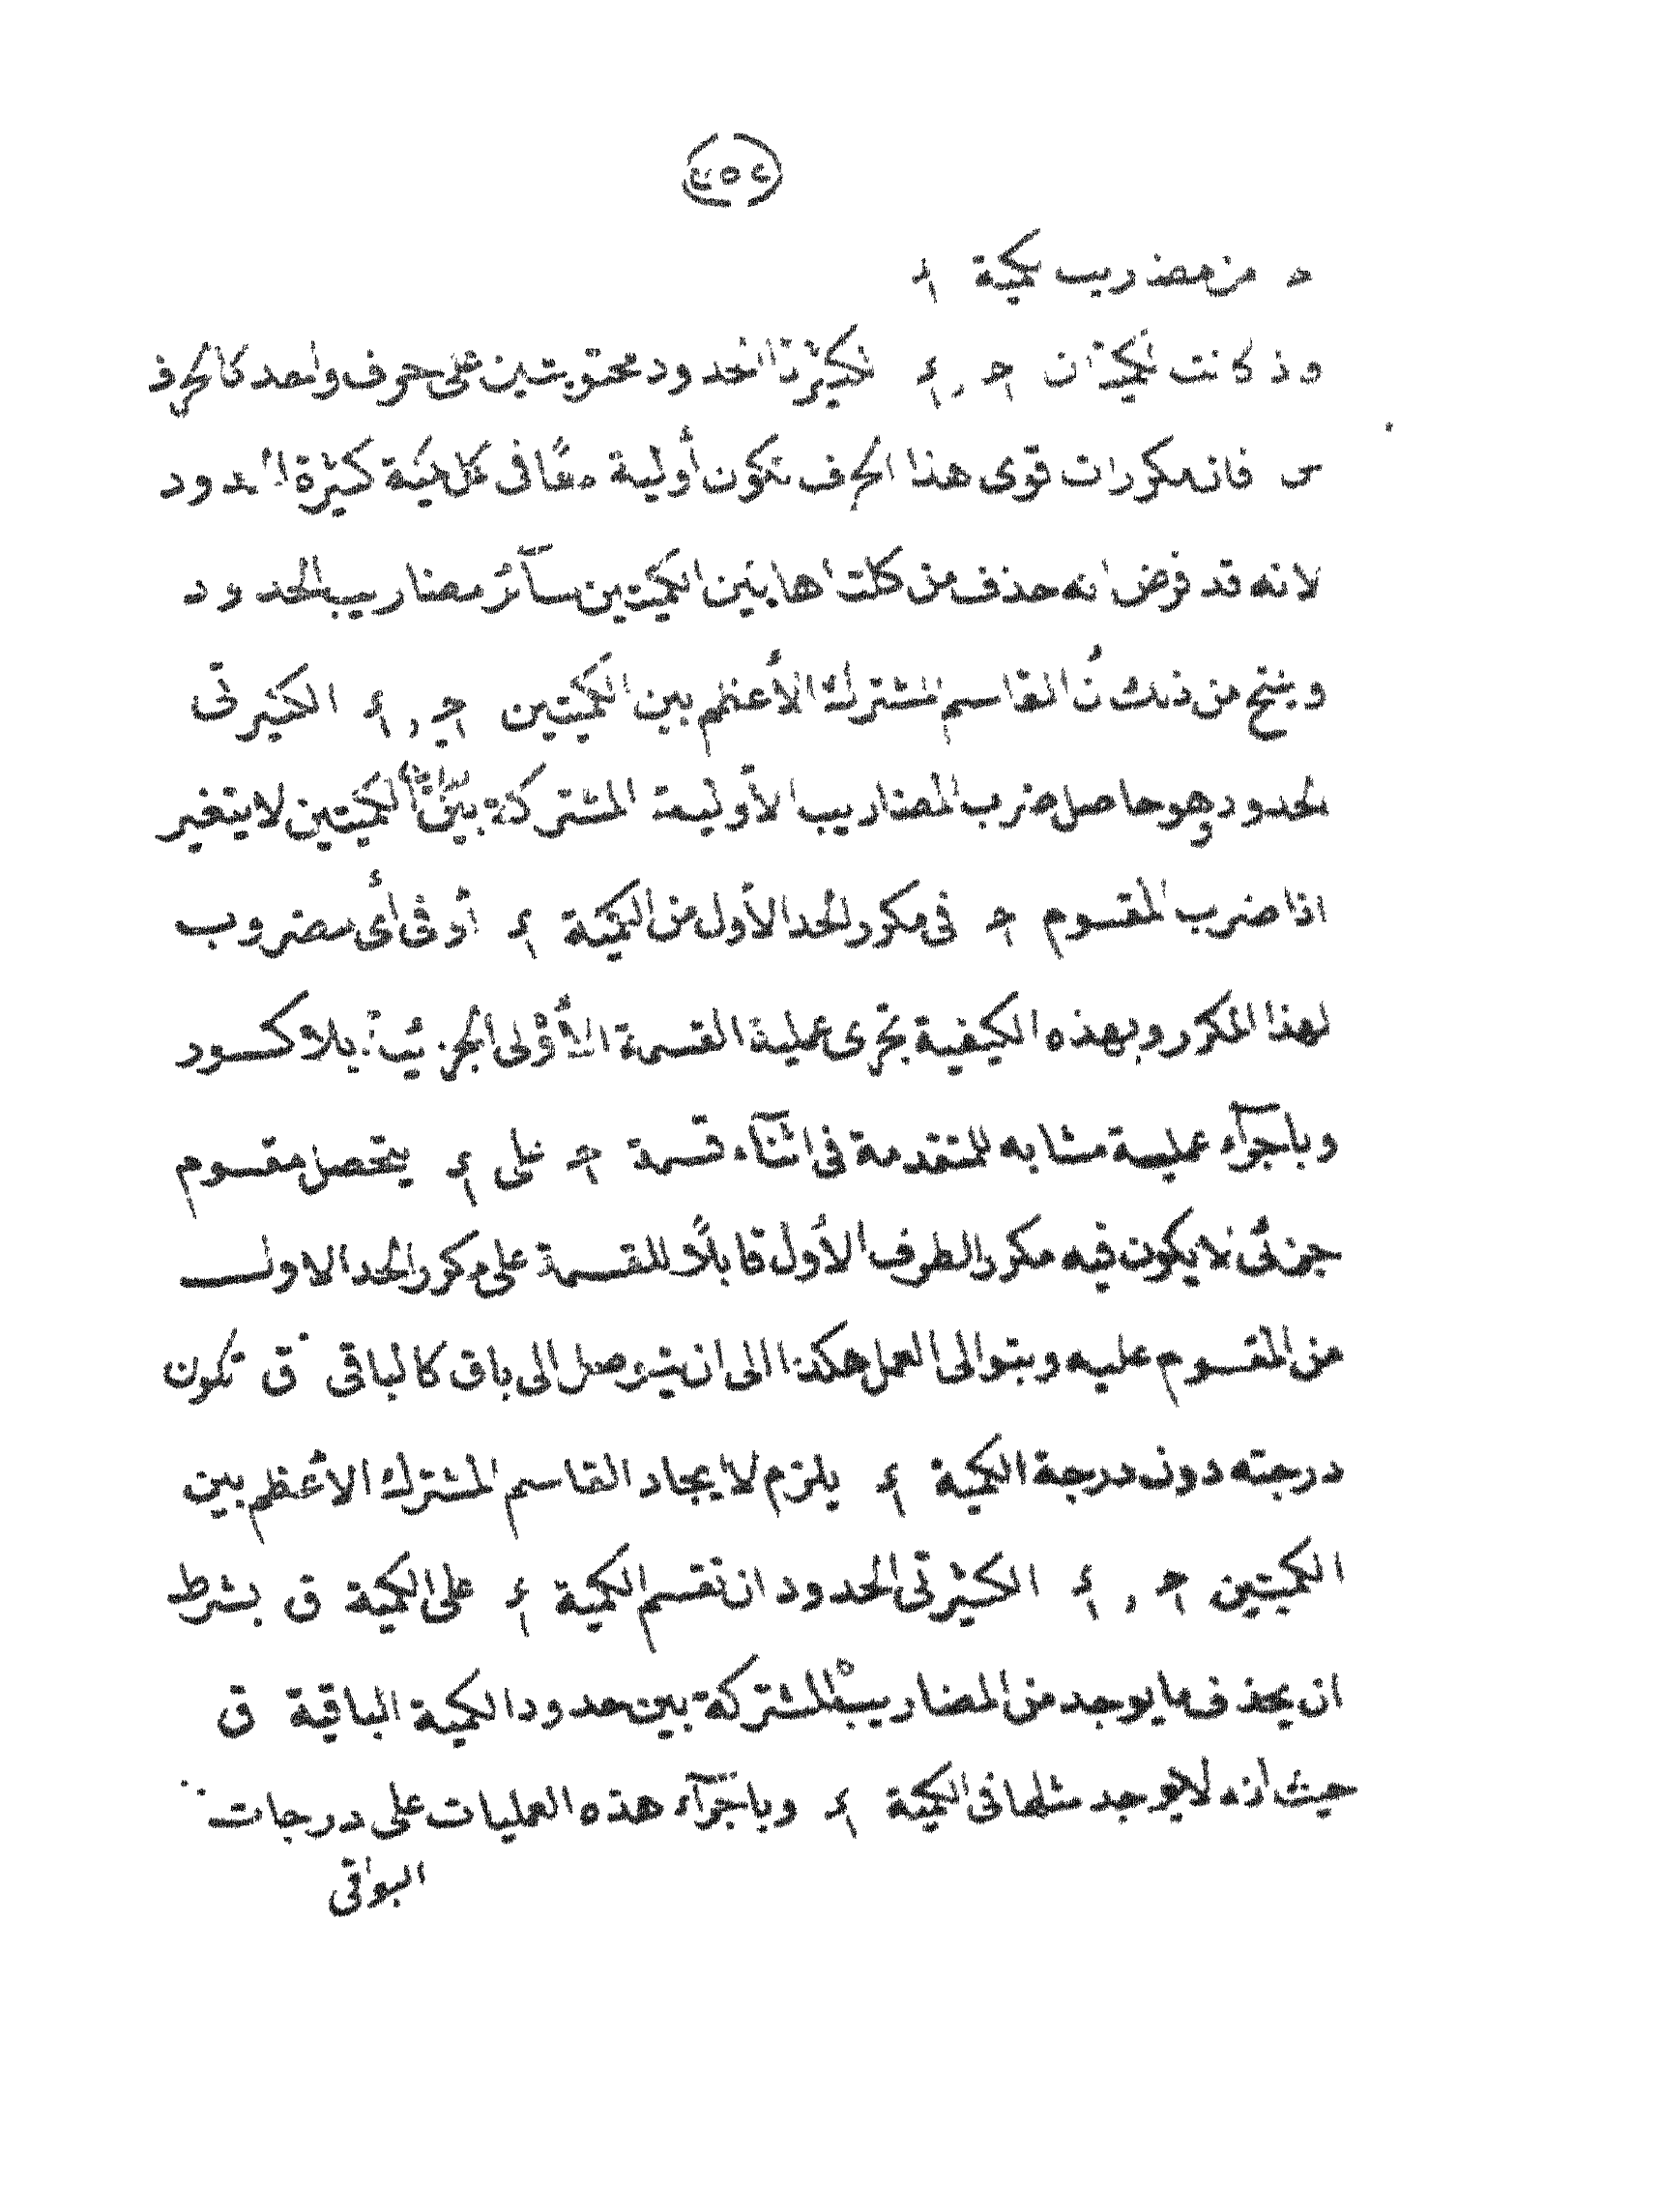 (٢٥٤)
د من مضاريب كمية أ
واذا كانت الكميتان حـ , أ الكثيرتا الحدود محتويتين على حرف واحد كالحرف
س فان مكررات قوى هذا الحرف تكون أولية معًا فى كل كمية كثيرة الحدود
لانه قد فرض انه حذف من كلتا هاتين الكميتين سآئر مضاريب الحدود
وينتج من ذلك أن القاسم المشترك الأعظم بين الكميتين حـ , أ الكثيرتى
الحدود وهو حاصل ضرب المضاريب الأولية المشتركة بين هاتين الكميتين لا يتغير
اذا ضرب المقسوم حـ فى مكرر الحد الأول من الكمية أ أو فى أى مضروب
لهذا المكرر وبهذه الكيفية تجرى عملية القسمة الأولى الجزئية بلا كسور
وباجرآء عملية مشابه للمتقدمة فى اثنآء قسمة حـ على أ يتحصل مقسوم
جزئى لا يكون فيه مكرر الطرف الأول قابلاً للقسمة على مكرر الحد الاول
من المقسوم عليه ويتوالى العمل هكذا الى ان يتوصل الى باق كالباقى ق تكون
درجته دون درجة الكمية أ يلزم لايجاد القاسم المشترك الأعظم بين
الكميتين حـ , أ الكثيرتى الحدود ان تقسم الكمية أ على الكمية ق بشرط
ان يحذف ما يوجد من المضاريب المشتركة بين حدود الكمية الباقية ق
حيث انه لا يوجد مثلها فى الكمية أ وباجرآء هذه العمليات على درجات
البواقى